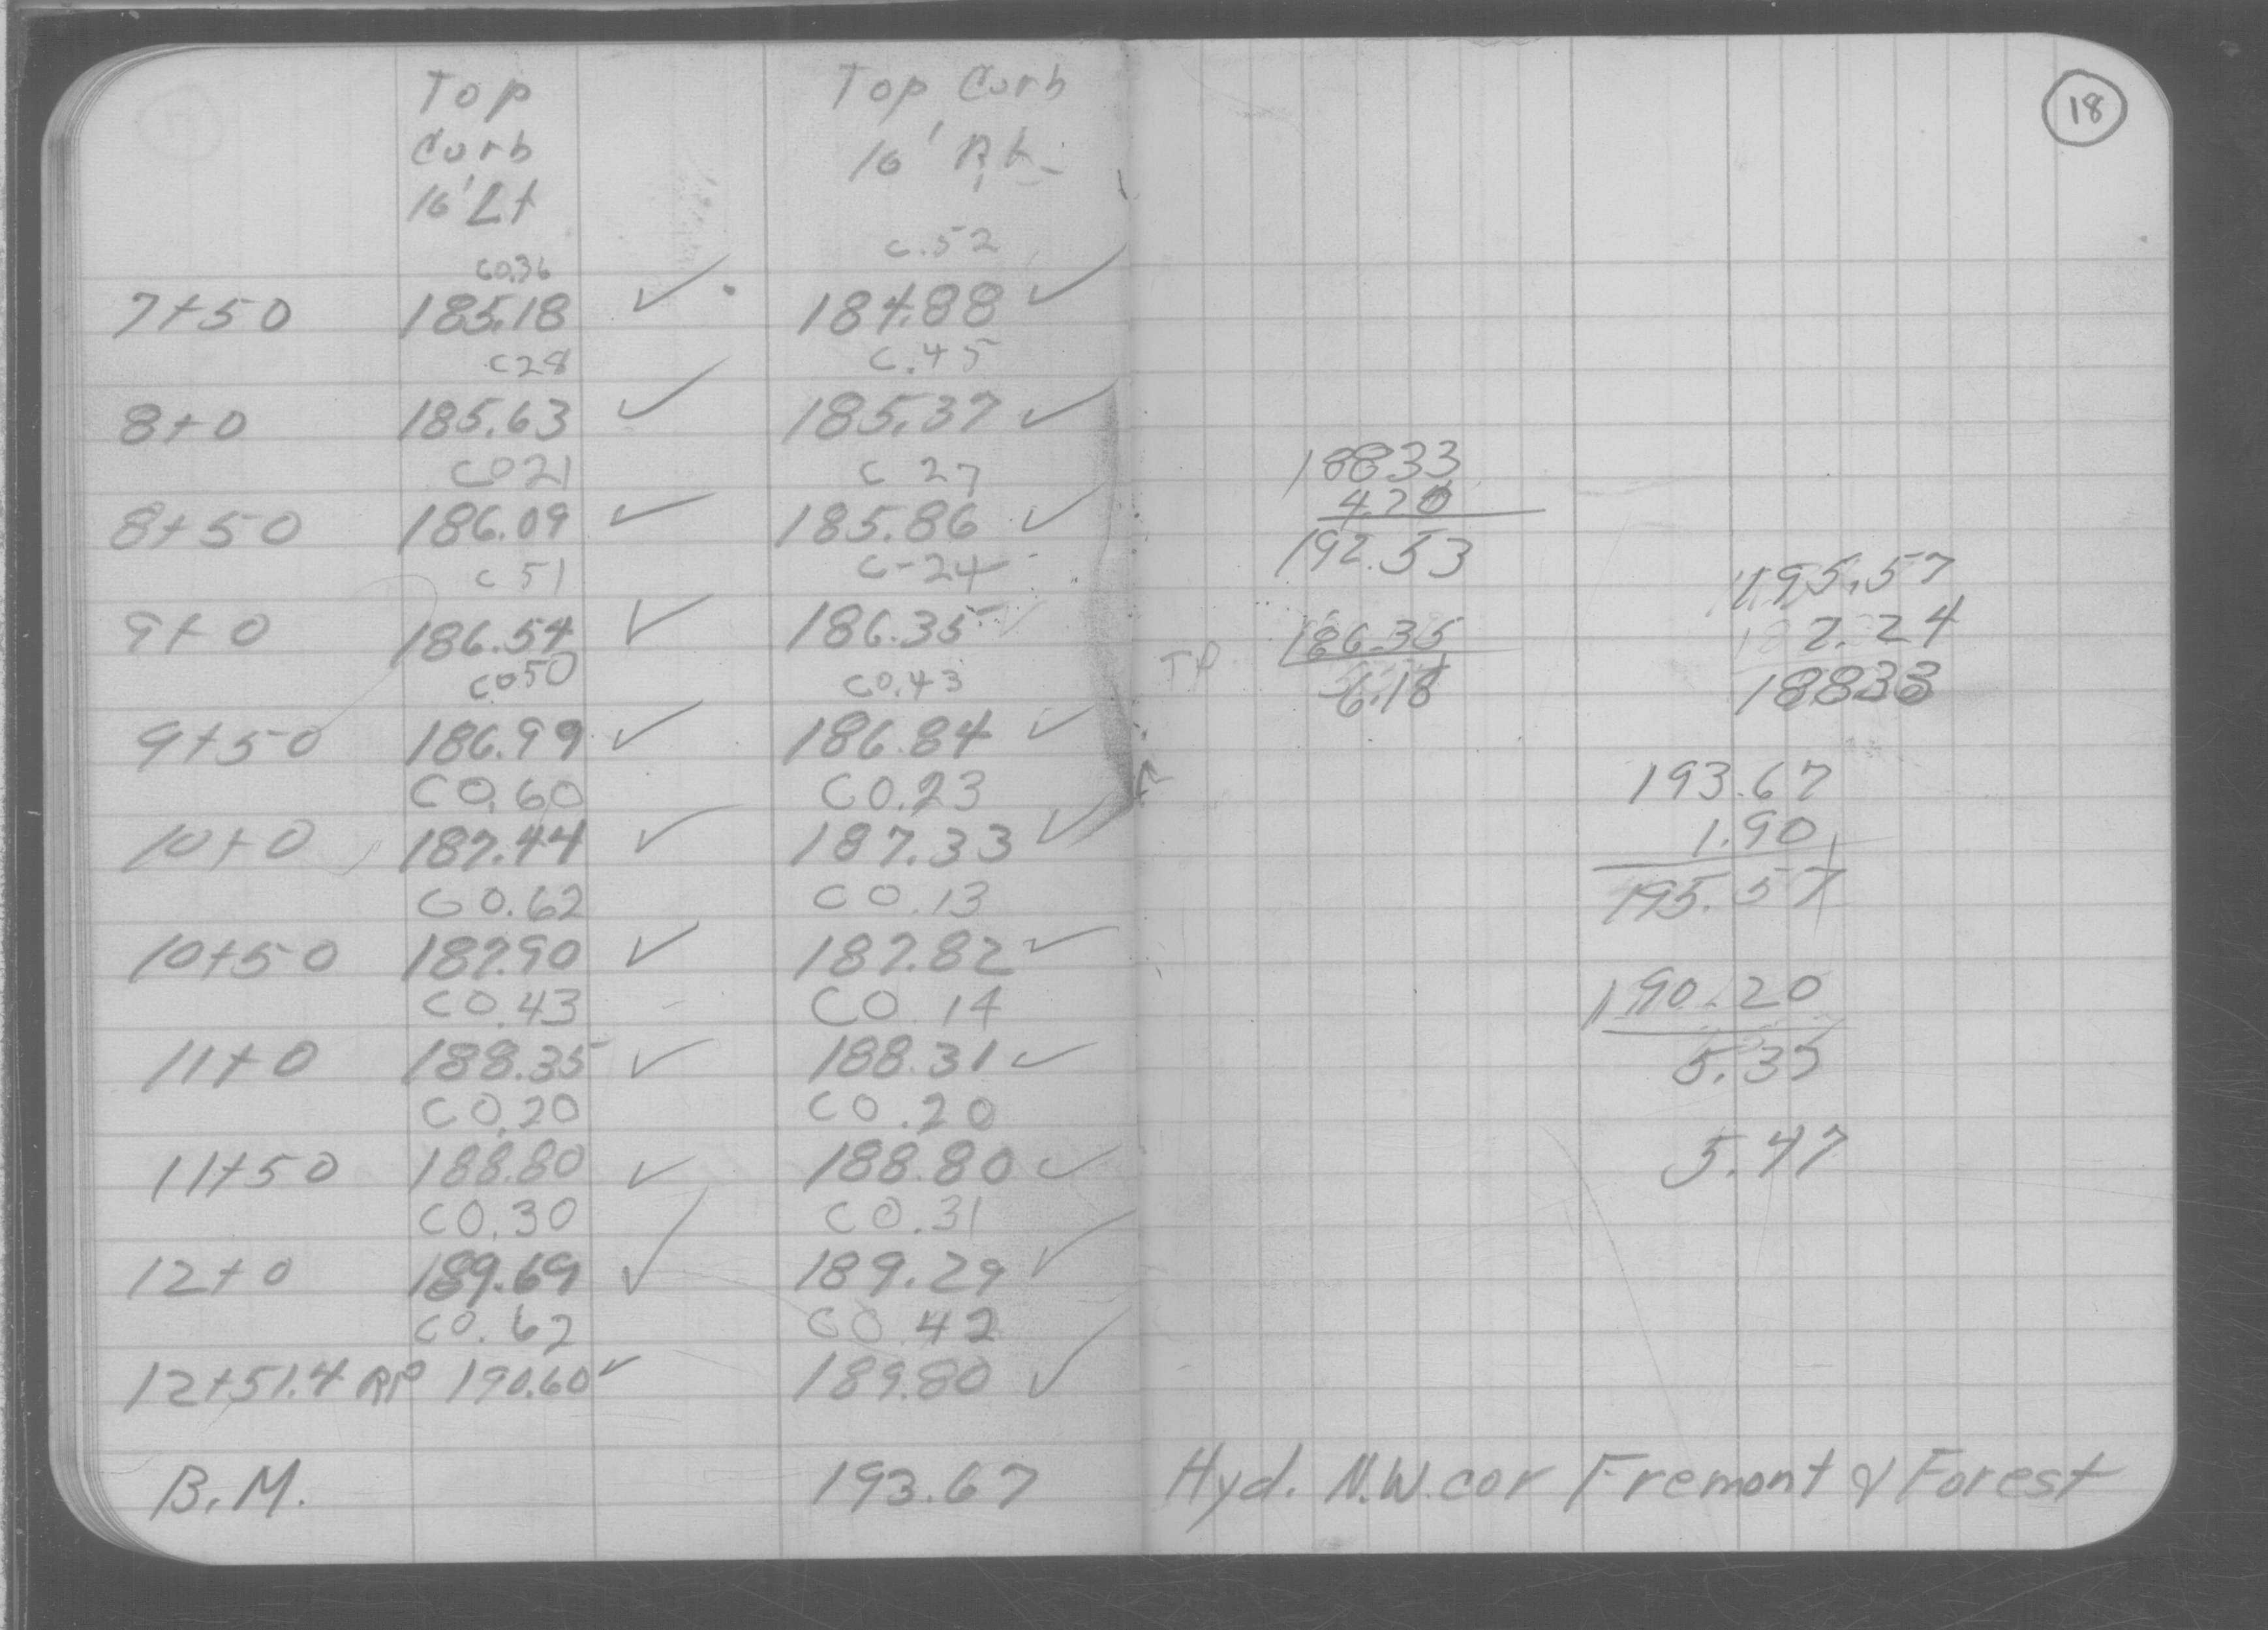 18
Top Top Curb
Curb 16' Rt
16' Lt
C0.36 C.52
7+50 185.18 ✓ 184.88 ✓
C28 C.45
8+0 185.63 ✓ 185.37 ✓
C021 C 27
8+50 186.09 ✓ 185.86 ✓
C 51 C-24
9+0 186.54 ✓ 186.35 ✓
C050 C0.43
9+50 186.99 ✓ 186.84 ✓
C0.60 C0.23
10+0 187.44 ✓ 187.33 ✓
C0.62 C0.13
10+50 187.90 ✓ 187.82 ✓
C0.43 C0.14
11+0 188.35 ✓ 188.31 ✓
C0.20 C0.20
11+50 188.80 ✓ 188.80 ✓
C0.30 C0.31
12+0 189.69 ✓ 189.29 ✓
C0.62 C0.42
12+51.4 RP 190.60 ✓ 189.80 ✓
B.M. 193.67 Hyd. N.W. cor Fremont & Forest
18833
4.20
192.53
TP 186.35
6.18
195.57
2.24
18833
193.67
1.90
195.57
190.20
5.35
5.47